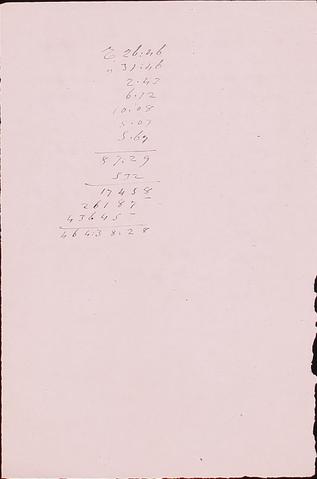 ₹ 26.46
" 31.46
2.43
6.12
10.08
5.07
5.67
87.29
532
17458
26187
43645
46438.28